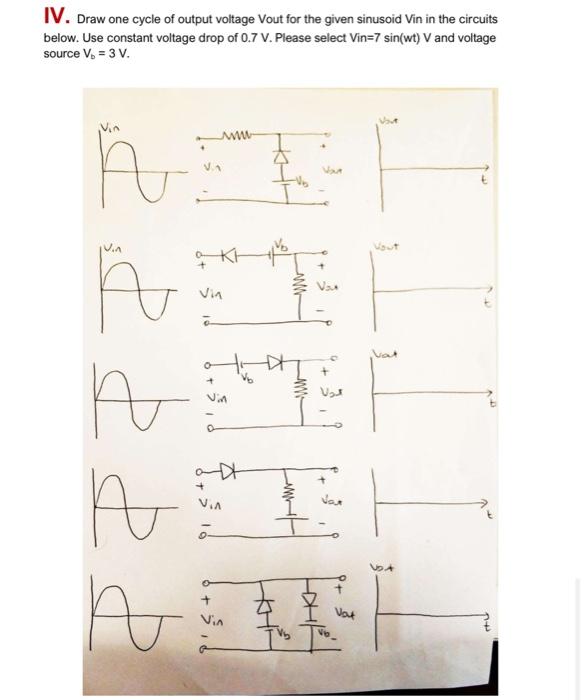 IV. Draw one cycle of output voltage Vout for the given sinusoid Vin in the circuits
below. Use constant voltage drop of 0.7 V. Please select Vin=7 sin(wt) V and voltage
source Vb = 3 V.
Vin
+
Vin
-
Vb
+
Vout
-
Vout
t
Vin
+
Vin
-
Vb
+
Vout
-
Vout
t
+
Vin
-
Vb
+
Vout
-
Vout
t
+
Vin
-
+
Vout
-
t
+
Vin
-
Vb
Vb
+
Vout
-
Vout
t